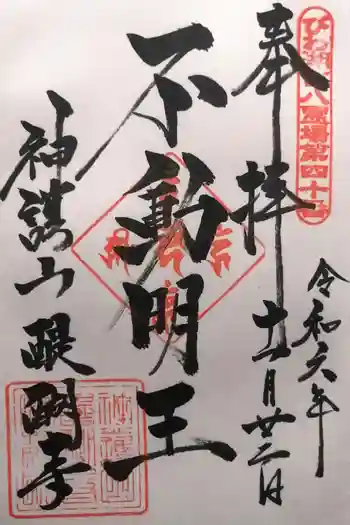 びわ湖百八霊場第四十番
奉拝
令和六年
十一月廿三日
不動明王
神護山醍醐寺